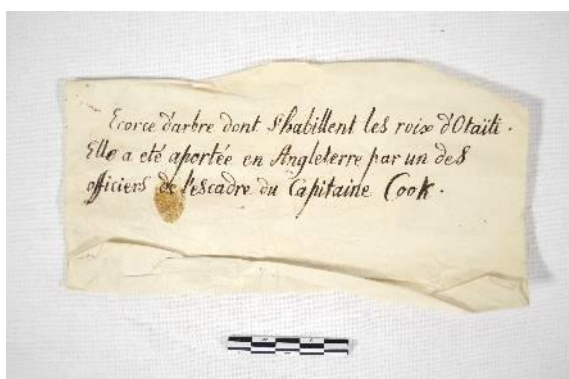 Ecorce d'arbre dont s'habillent les roix d'Otaïti.
Elle a eté aportée en Angleterre par un des
officiers de l'escadre du Capitaine Cook.